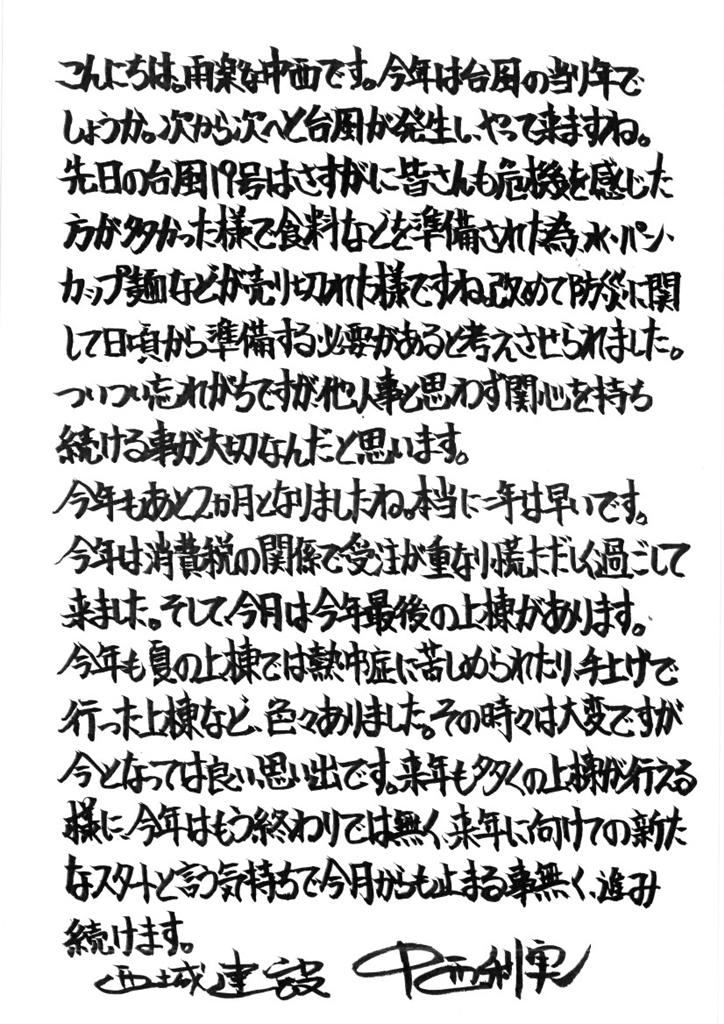 こんにちは。雨楽な中西です。今年は台風の当り年で
しょうか。次から次へと台風が発生し、やって来ますね。
先日の台風19号はさすがに皆さんも危機を感じた
方が多かった様で食料などを準備された為、水・パン・
カップ麺などが売り切れた様ですね。改めて防災に関
して日頃から準備する必要があると考えさせられました。
ついつい忘れがちですが、他人事と思わず関心を持ち
続ける事が大切なんだと思います。
今年もあと2か月となりましたね。本当に一年は早いです。
今年は消費税の関係で受注が重なり、慌ただしく過ごして
来ました。そして、今月は今年最後の上棟があります。
今年も夏の上棟では熱中症に苦しめられたり、手上げで
行った上棟など、色々ありました。その時々は大変ですが
今となっては良い思い出です。来年も多くの上棟が行える
様に、今年はもう終わりでは無く、来年に向けての新た
なスタートと言う気持ちで今月からも止まる事無く、進み
続けます。
西城建設 中西利実